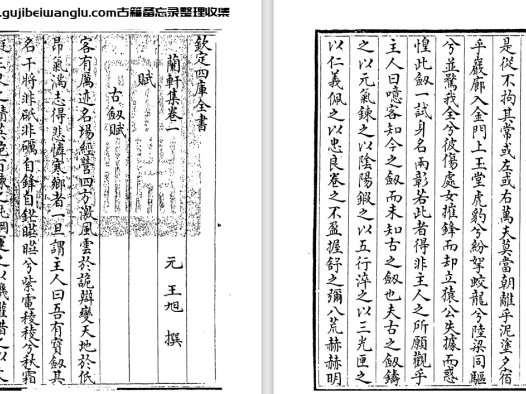 .gujibeiwanglu.com古籍备忘录整理收集
欽定四庫全書
蘭軒集卷一
元 王旭 撰
賦
古劔賦
客有厲迹名場經營四方激風雲於詭辯變天地於低
昂氣滿志得悲憐寒鄉者一旦謂主人曰吾有寶劔其
名干將非砥非礪自鋒自鋩㬢㬢兮紫電稜稜兮秋霜
是從不拘其常或左或右萬夫莫當朝離乎泥塗夕宿
乎巖廊入金門上玉堂虎豹兮紛挐蛟龍兮陸梁同驅
兮並騖我全兮彼傷處女摧鋒而却立猿公失據而惑
惶此劔一試身名兩彰若此者得非主人之所願觀乎
主人曰噫客知今之劔而未知古之劔也夫古之劔鑄
之以元氣鍊之以陰陽鍜之以五行淬之以三光匣之
以仁義佩之以忠良卷之不盈握舒之彌八荒赫赫明